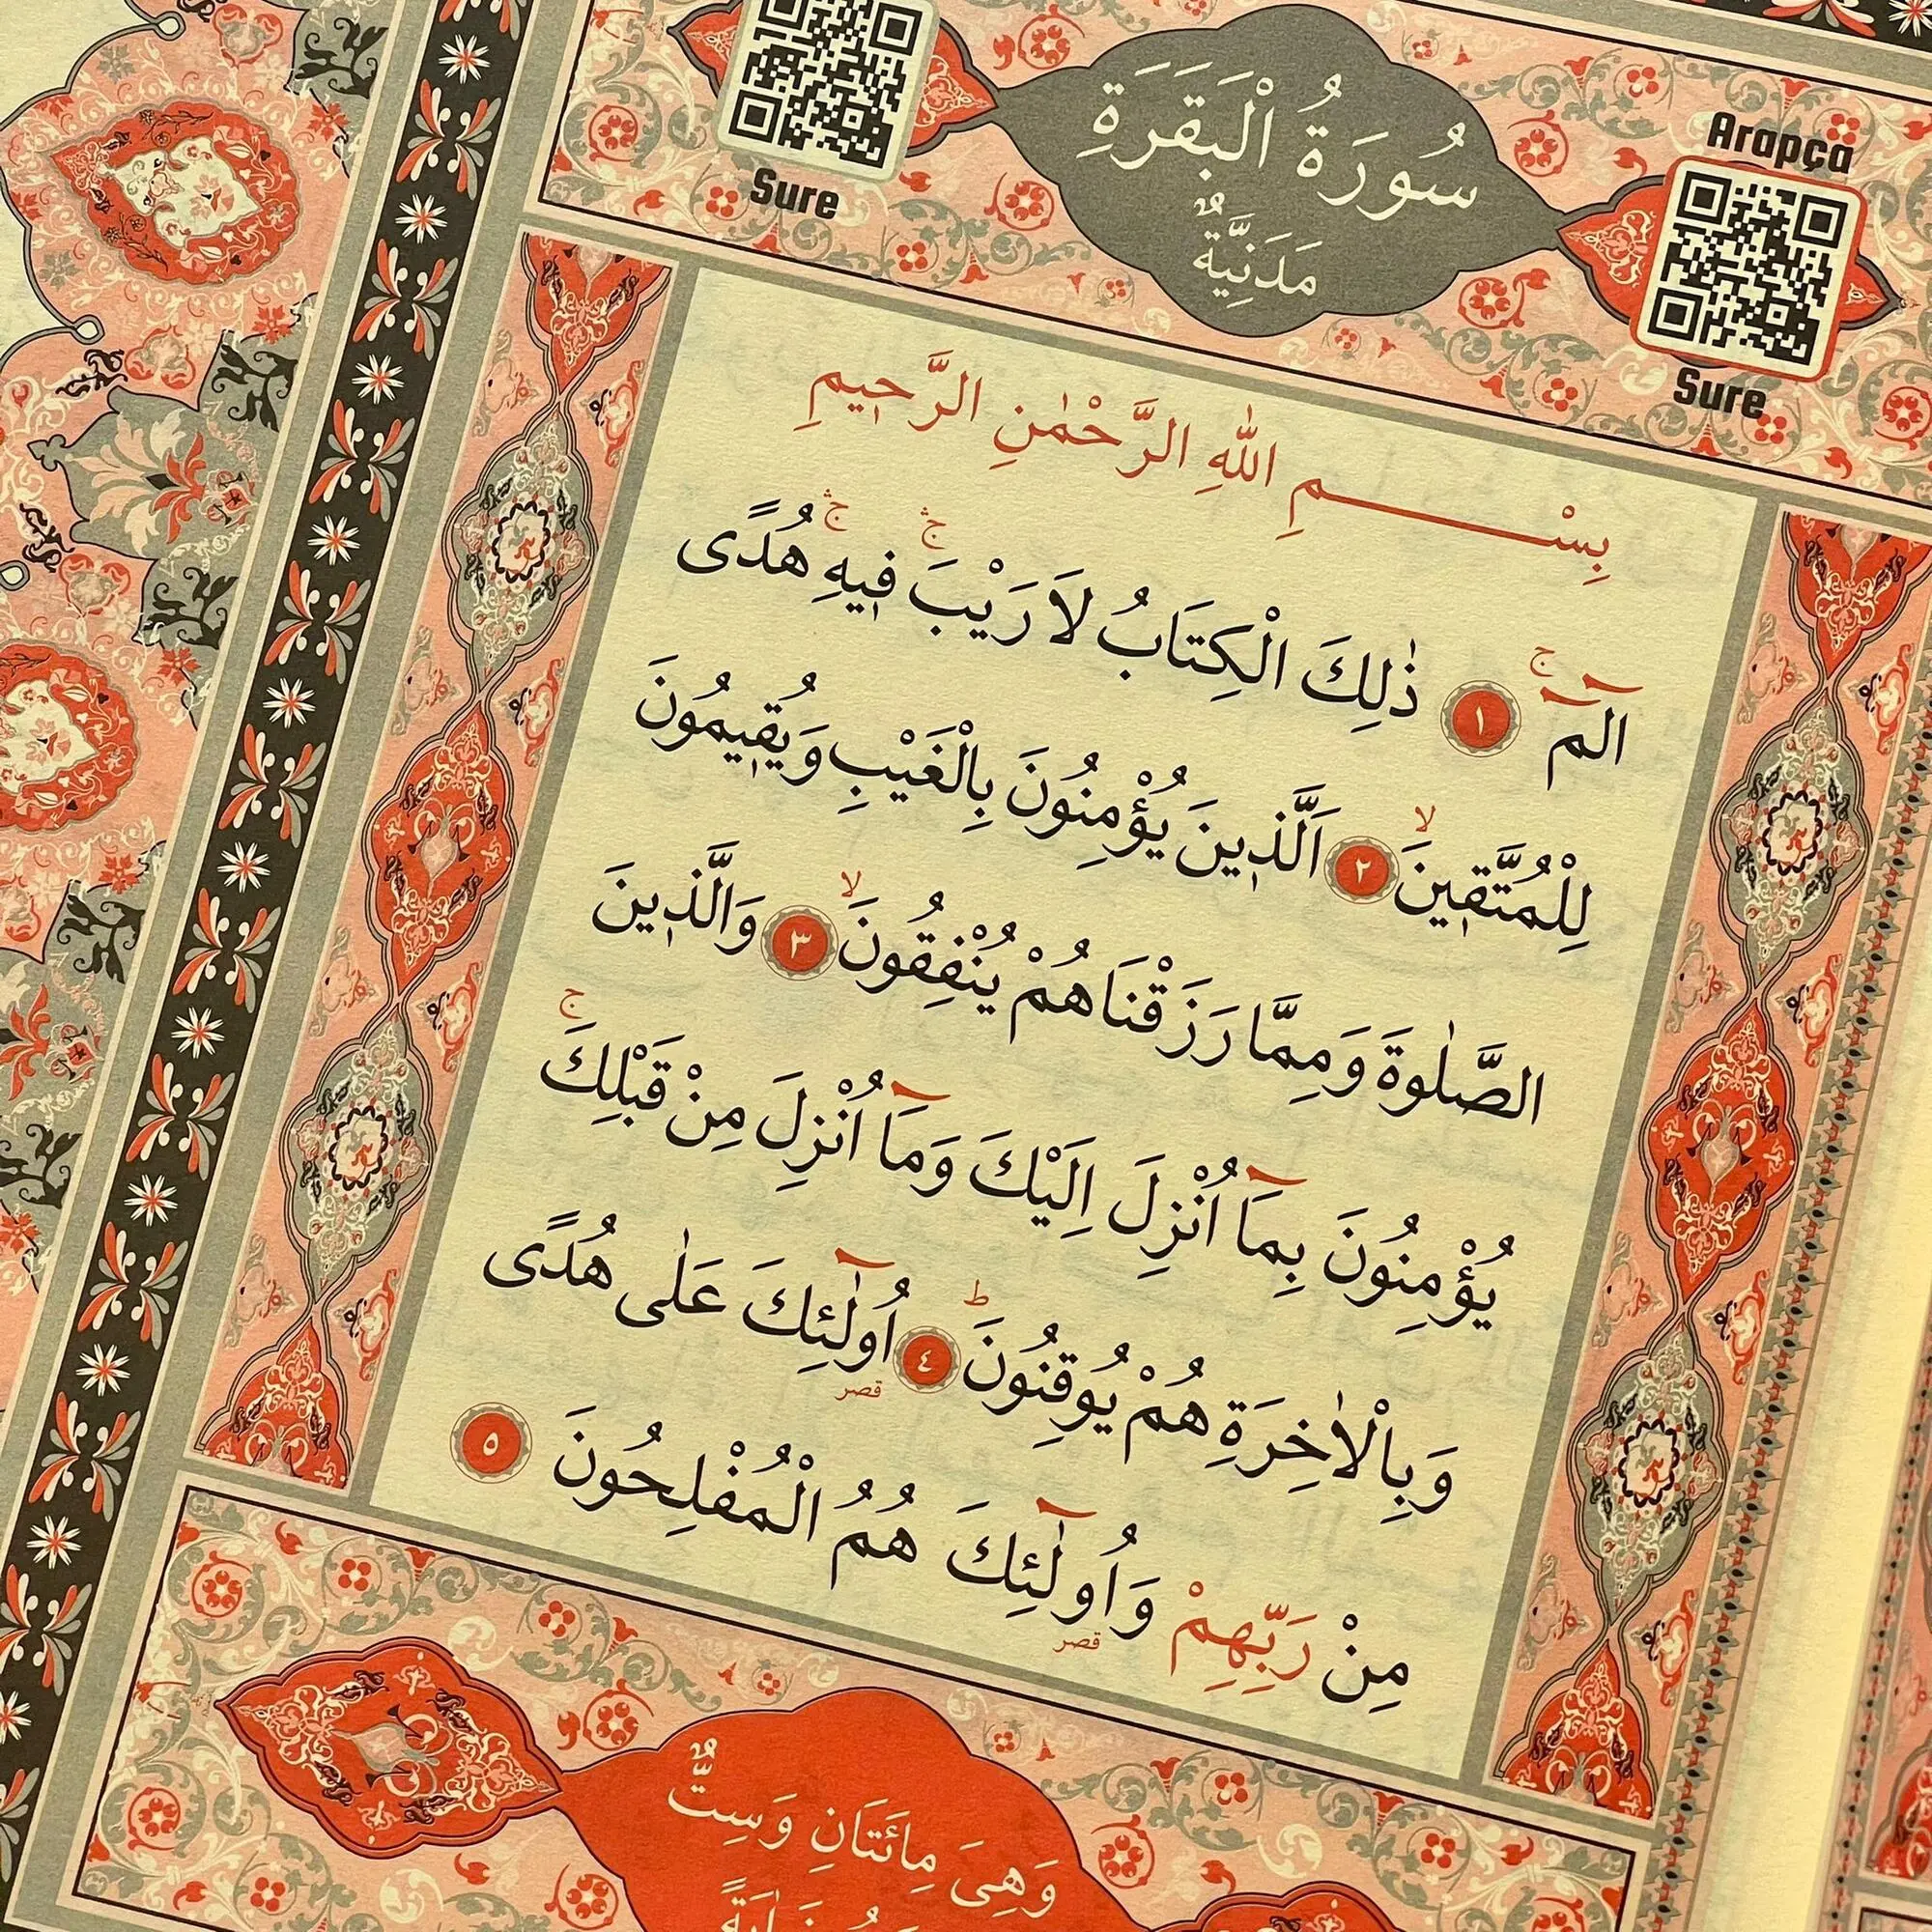 سُورَةُ الْبَقَرَةِ
مَدَنِيَّةٌ
Sure
Arapça
Sure
بِسْمِ اللّٰهِ الرَّحْمٰنِ الرَّح۪يمِ
الٓمٓ ۚ ﴿١﴾ ذٰلِكَ الْكِتَابُ لَا رَيْبَ ۚۛ ف۪يهِ ۚۛ هُدًى
لِلْمُتَّق۪ينَ ۙ ﴿٢﴾ اَلَّذ۪ينَ يُؤْمِنُونَ بِالْغَيْبِ وَيُق۪يمُونَ
الصَّلٰوةَ وَمِمَّا رَزَقْنَاهُمْ يُنْفِقُونَ ۙ ﴿٣﴾ وَالَّذ۪ينَ
يُؤْمِنُونَ بِمَٓا اُنْزِلَ اِلَيْكَ وَمَٓا اُنْزِلَ مِنْ قَبْلِكَ ۚ
وَبِالْاٰخِرَةِ هُمْ يُوقِنُونَ ۜ ﴿٤﴾ اُو۬لٰٓئِكَ عَلٰى هُدًى
قصر
مِنْ رَبِّهِمْ وَاُو۬لٰٓئِكَ هُمُ الْمُفْلِحُونَ ﴿٥﴾
قصر
وَهِيَ مِائَتَانِ وَسِتٌّ